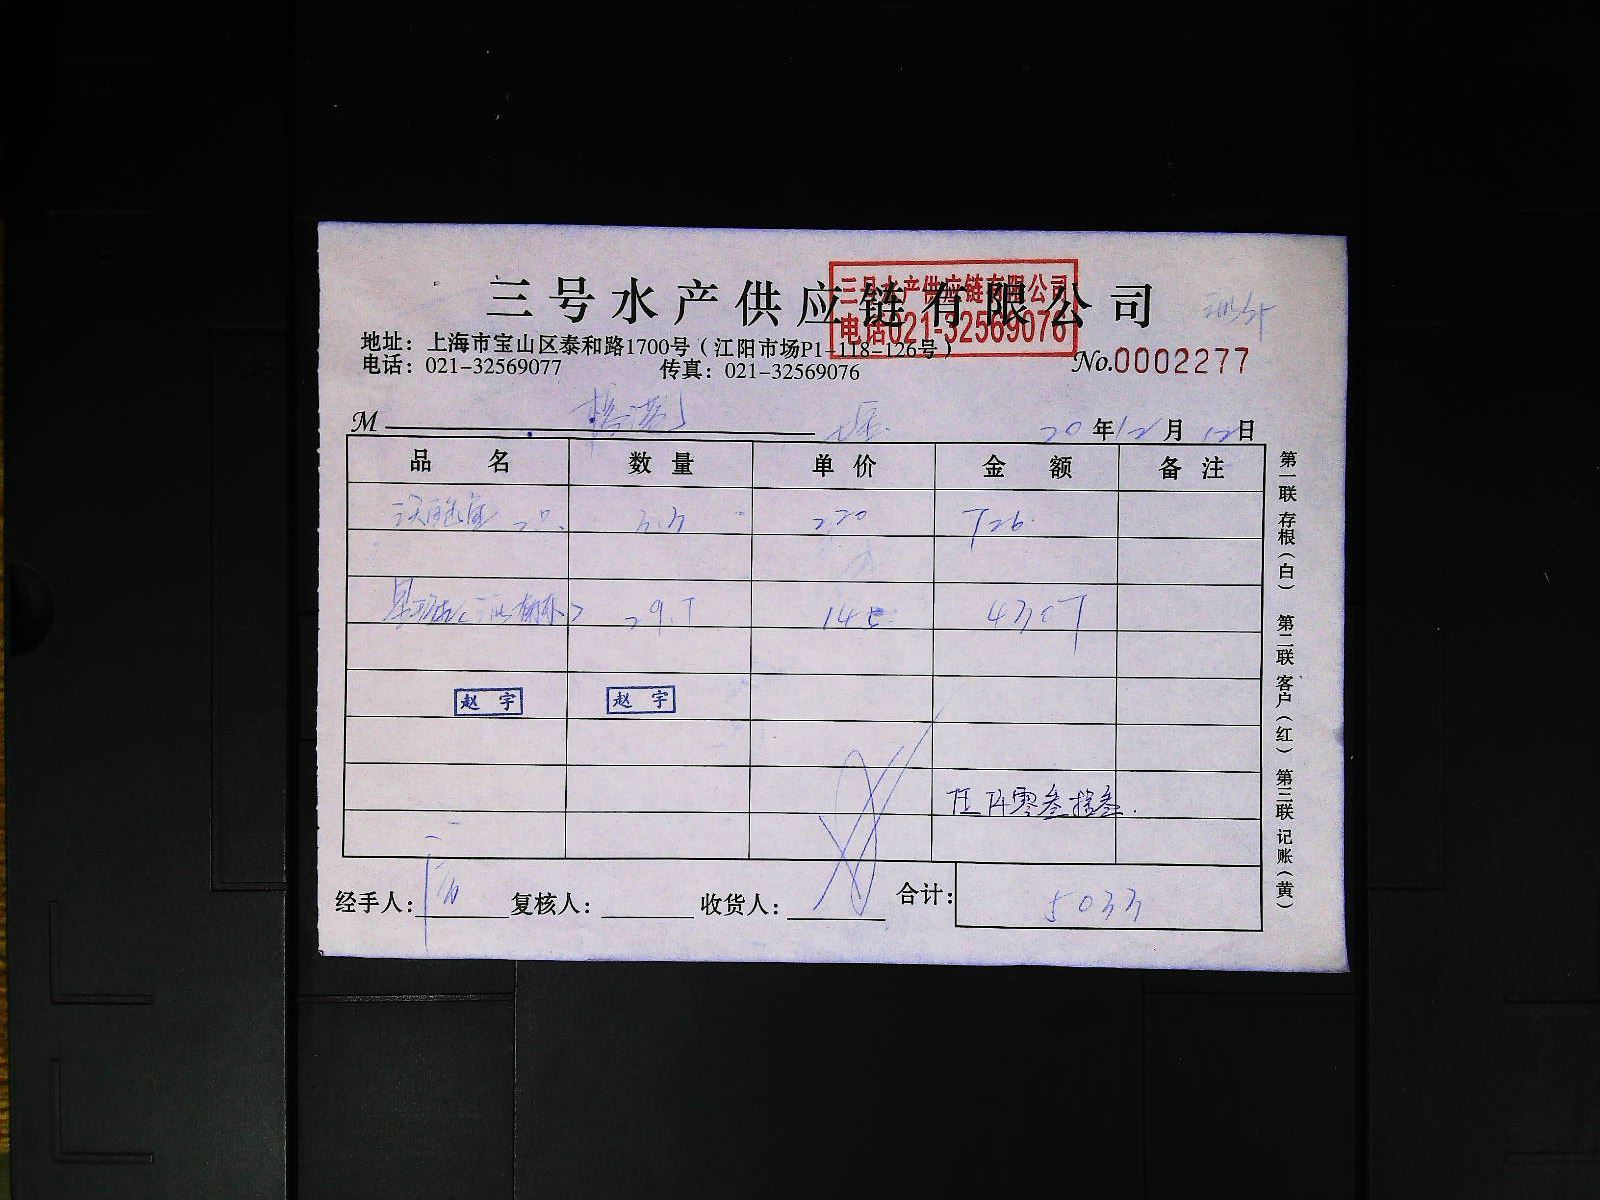 三号水产供应链有限公司
三号水产供应链有限公司
电话021-32569076
地址：上海市宝山区泰和路1700号（江阳市场P1-118-126号）
电话：021-32569077 传真：021-32569076
No.0002277
M
20年12月12日
品名 数量 单价 金额 备注
3.3 220 726
145
赵宇 赵宇
伍仟零叁拾叁
经手人： 复核人： 收货人： 合计： 5033
第一联 存根（白） 第二联 客户（红） 第三联 记账（黄）